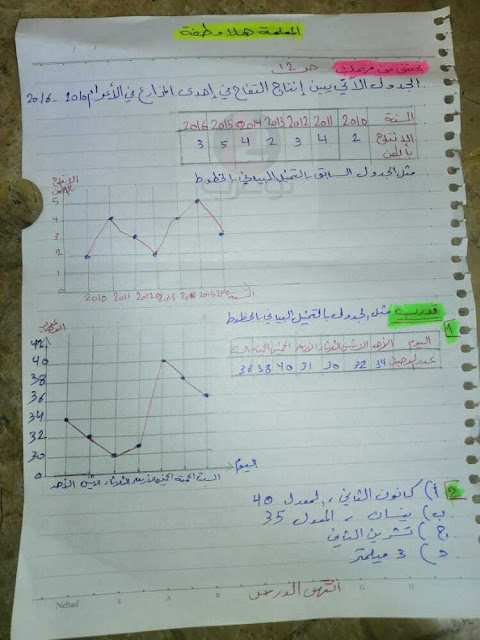 المعلمة هلا وطفة
تحقق من فهمك ص 12
الجدول الآتي يبين إنتاج التفاح في إحدى المزارع في الأعوام 2010 - 2016
السنة 2010 2011 2012 2013 2014 2015 2016
الإنتاج بالطن 2 4 3 2 4 5 3
مثل الجدول السابق بالتمثيل البياني بالخطوط
5
4
3
2
1
0
2010 2011 2012 2013 2015 السنة
تدرب مثل الجدول بالتمثيل البياني بالخطوط
1
اليوم الأحد الاثنين الثلاثاء الأربعاء الخميس الجمعة السبت
34 32 30 31 40 38 36
42
40
38
36
34
32
30
0
الأحد الاثنين الثلاثاء الأربعاء الخميس الجمعة السبت
اليوم
2
أ) كانون الثاني، المعدل 40
ب) نيسان، المعدل 35
ج) تشرين الثاني
د) 3 ميلمتر
انتهى الدرس
Nebad S A B G U